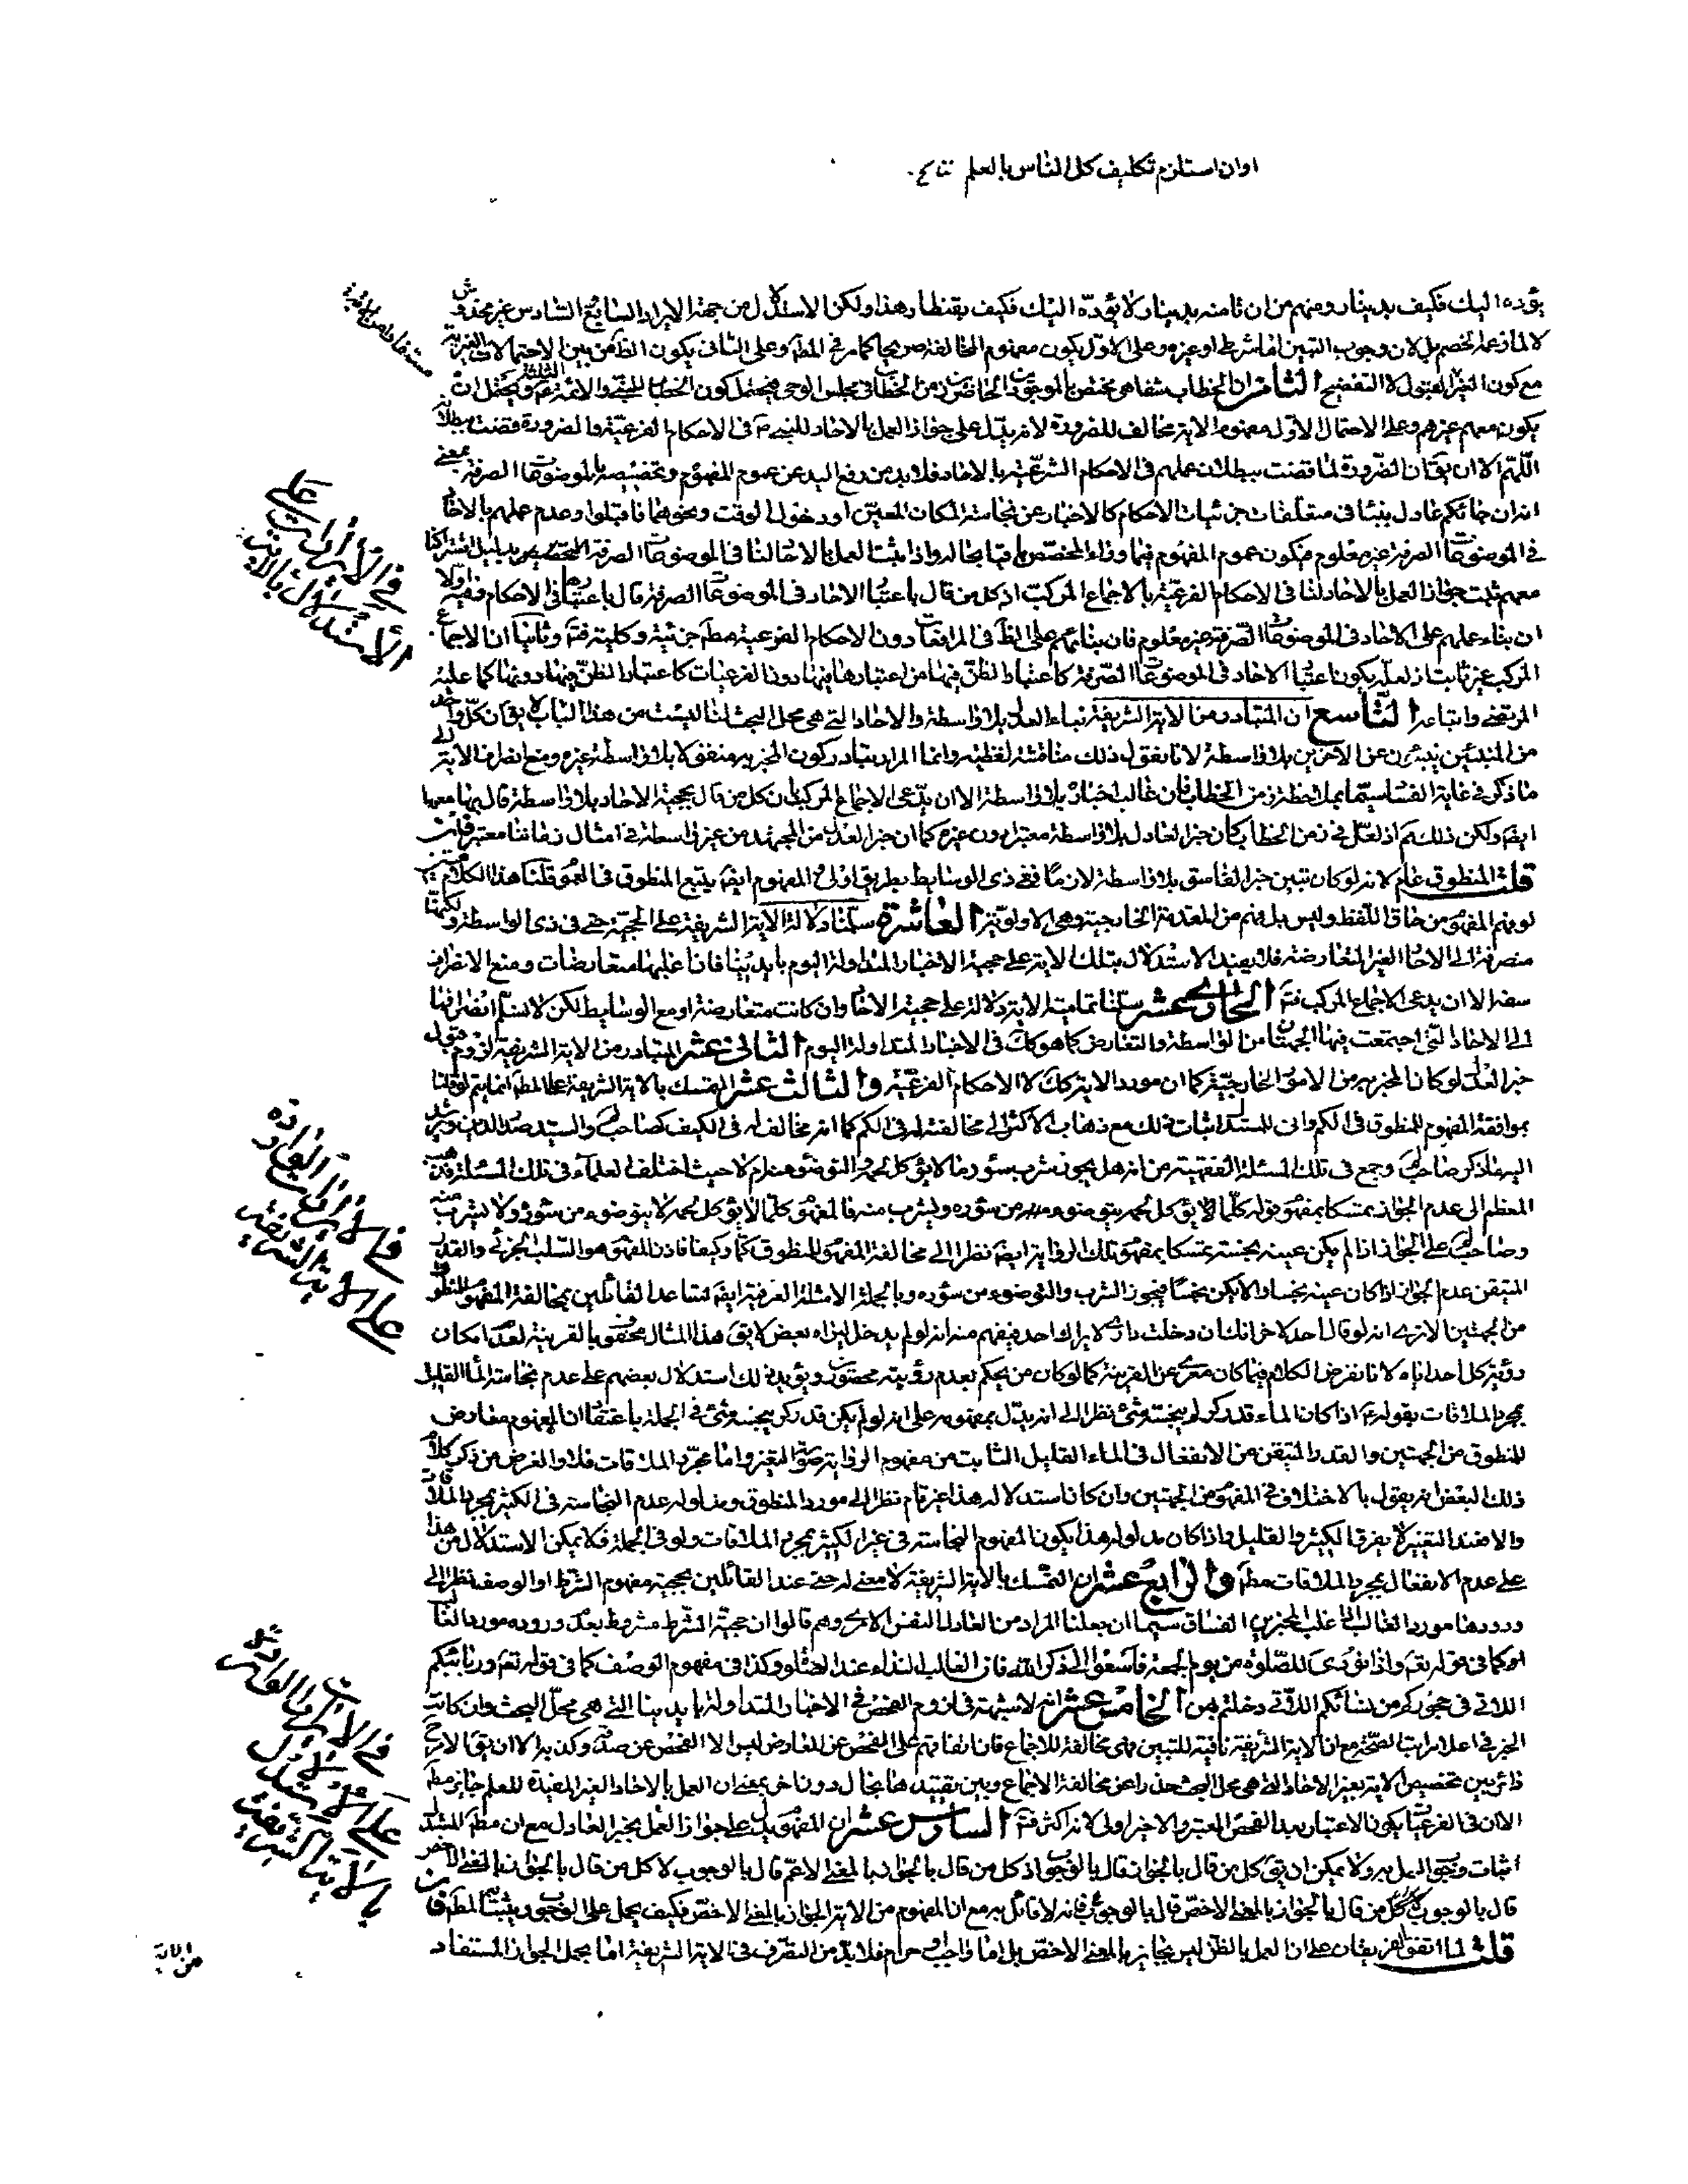 اوان استلزم تكليف كل الناس بالعلم
يؤده اليك فكيف بدينار ومنهم من ان تامنه بدينار لا يؤده اليك فكيف بقنطار هذا ولكن الاستدلال من جهة الايراد السابع السادس غير مخدوش
لا لما زعمه الخصم بل لان وجوب التبين اما شرطي او غيره وعلى الاول يكون مفهوم المخالفة صريحا كما مر في المطه وعلى الثاني يكون الظ من بين الاحتمالات
مع كون الخبر المقبول لا التفضيح الثامن ان الخطاب شفاهي مختص بالموجودين الحاضرين زمن الخطاب في مجلس الوحي فيحتمل كون الخطاب ويحتمل ان
يكون معهم غيرهم وعلى الاحتمال الاول مفهوم الاية مخالف للضرورة لانه يدل على جواز العمل بالاحاد للنبي ص في الاحكام الفرعية والضرورة قضت ببطلانه
اللهم الا ان يق ان الضرورة لما قضت ببطلان عملهم في الاحكام الشرعية بالاحاد فلا بد من رفع اليد عن عموم المفهوم وتخصيصه بالموضوعات الصرفة بمعنى
انه ان جائكم عادل بنبأ في متعلقات جزئيات الاحكام كالاخبار عن نجاسة المكان المعين او دخول الوقت ونحوهما فاقبلوا وعدم عملهم بالاحاد
في الموضوعات الصرفة غير معلوم فيكون عموم المفهوم فيما وراء المخصص باقيا بحاله واذا ثبت العمل بالاحاد لنا في الموضوعات الصرفة
معهم ثبت جواز العمل بالاحاد لنا في الاحكام الفرعية بالاجماع المركب اذ كل من قال باعتبار الاحاد في الموضوعات الصرفة قال باعتبارها في الاحكام وفيه اولا
ان بناء عملهم على الاحاد في الموضوعات الصرفة غير معلوم فان بنائهم على الظ في المرافعات دون الاحكام الفرعية مطه جزئية وكلية فته وثانيا ان الاجماع
المركب غير ثابت اذ لعله يكون اعتبار الاحاد في الموضوعات الصرفة كاعتبار الظن فيها من اعتبارها فيها دون الفرعيات كاعتبار الظن فيها دونها كما عليه
المرتضى واتباعه التاسع ان المتبادر من الاية الشريفة نباء العدل بلا واسطة والاحاد التي هي محل البحث لنا ليست من هذا الباب لا يق ان كل واحد
من المنبئين ينبئون عن الاخرين بلا واسطة لانا نقول ذلك مناقشة لفظية وانما المراد تبادر كون المخبر به متفق لا بلا واسطة غيره ومنع انصراف الاية الى
ما ذكر في غاية الفساد سيما بملاحظة زمن الخطاب فان غالب اخباره بلا واسطة الا ان يدعى الاجماع المركب بان كل من قال بحجية الاحاد بلا واسطة قال بها معها
ايضه ولكن ذلك مم اذ لعل في زمن الخطاب كان خبر العادل بلا واسطة معتبرا دون غيره كما ان خبر العدل من المجتهد من غير واسطة في امثال زماننا معتبر فان قلت
قلت المنطوق عام لانه لو كان تبين خبر الفاسق بلا واسطة لازما ففي ذي الوسايط بطريق اولى والمفهوم ايضه يتبع المنطوق في العموم قلنا هذا الكلام
لو فهم المفهوم من حاق اللفظ وليس بل فهم من المقدمة الخارجية وهي الاولوية العاشرة سلمنا دلالة الاية الشريفة على الحجية حتى في ذي الواسطة ولكنها
منصرفة الى الاحاد الغير المتعارضة فلا يفيد الاستدلال بتلك الاية على حجية الاخبار المتداولة اليوم بايدينا فان غالبها متعارضات ومنع الانصراف
سفه الا ان يدعى الاجماع المركب فته الحادي عشر سلمنا تمامية الاية دلالة على حجية الاخبار وان كانت متعارضة او مع الوسايط لكن لا نسلم انصرافها
الى الاحاد التي اجتمعت فيها الجهتان من الواسطة والتعارض كما هو كك في الاخبار المتداولة اليوم الثاني عشر المتبادر من الاية الشريفة لزوم قبول
خبر العدل لو كان المخبر به من الامور الخارجية كما ان مورد الاية كك لا الاحكام الفرعية والثالث عشر التمسك بالاية الشريفة على المطه انما يتم لو قلنا
بموافقة المفهوم للمنطوق في الكم وانى للمستدل اثبات ذلك مع ذهاب الاكثر الى مخالفته له في الكم كما انه مخالف له في الكيف كصاحب لم والسيد صدر الدين ويرشد
اليه ما ذكر صاحب لم وجمع في تلك المسئلة الفقهية من انه هل يجوز شرب سؤر ما لا يؤكل لحمه والتوضؤ منه ام لا حيث اختلف العلماء في تلك المسئلة فذهب
المعظم الى عدم الجواز تمسكا بمفهوم قوله كلما يؤكل لحمه يتوضوء من سؤره ويشرب منه فالمفهوم كلما لا يؤكل لحمه لا يتوضوء من سؤره ولا يشرب منه
وصاحب لم على الجواز اذا لم يكن عينه نجسة تمسكا بمفهوم تلك الرواية ايضه نظرا الى مخالفة المفهوم للمنطوق كما وكيفا فاذن المفهوم هو السلب الجزئي والقدر
المتيقن عدم الجواز اذا كان عينه نجسا والا يكن نجسا فيجوز الشرب والتوضوء من سؤره وبالجملة الامثلة العرفية ايضه تساعد القائلين بمخالفة المفهوم للمنطوق
من الجهتين الا ترى انه لو قال احد لاخر انك ان دخلت داري لا يراك احد فيفهم منه انه لو لم يدخل ليراه بعض لا يق هذا المثال محفوف بالقرينة لعدم امكان
رؤية كل احد اياه لانا نفرض الكلام فيما كان معرى عن القرينة كما لو كان من يحكم بعدم رؤيته محصورين ويؤيد ذلك استدلال بعضهم على عدم نجاسة الماء القليل
بمجرد الملاقات بقوله ع اذا كان الماء قدر كر لم ينجسه شئ نظرا الى انه يدل بمفهومه على انه لو لم يكن قدر كر ينجسه شئ في الجملة باعتقاد ان المفهوم معارض
للمنطوق من الجهتين والقدر المتيقن من الانفعال في الماء القليل الثابت من مفهوم الرواية صورة التغير واما مجرد الملاقات فلا والغرض من ذكر كلام
ذلك البعض انه يقول بالاختلاف في المفهوم من الجهتين وان كان استدلاله هذا غير تام نظرا الى مورد المنطوق ومدلوله عدم النجاسة في الكثير بمجرد الملاقات
والا فعند التغير لا يفرق الكثير والقليل واذا كان مدلوله هذا يكون المفهوم النجاسة في غير الكثير بمجرد الملاقات ولو في الجملة فلا يمكن الاستدلال من هذا
على عدم الانفعال بمجرد الملاقات مطه والرابع عشر ان التمسك بالاية الشريفة لا معنى له حتى عند القائلين بحجية مفهوم الشرط او الوصف نظرا الى
ورودها مورد الغالب اذ اغلب المخبرين الفساق سيما ان جعلنا المراد من العادل النفس الامري وهم قالوا ان حجية الشرط مشروط بعدم وروده مورد الغالب
كما في قوله تعه واذا نودي للصلوة من يوم الجمعة فاسعوا الى ذكر الله فان الغالب النداء عند الصلوة وكذا في مفهوم الوصف كما في قوله تعه وربائبكم
اللاتي في حجوركم من نسائكم اللاتي دخلتم بهن الخامس عشر انه لا شبهة في لزوم الفحص في الاخبار المتداولة بايدينا التي هي محل البحث وان كانت
الخبر في اعلا مراتب الصحة مع ان الاية الشريفة نافية للتبين وهي مخالفة للاجماع فان اتفاقهم على الفحص عن المعارض ليس الا الفحص عن صدقه وكذبه الا ان يق الامر ح
دائر بين تخصيص الاية بغير الاحاد التي هي محل البحث حذرا عن مخالفة الاجماع وبين تقييدها بحال دون اخرى بمعنى ان العمل بالاحاد الغير المفيدة للعلم جايز مطه
الا ان في الفرعيات يكون الاعتبار بعد الفحص المعتبر والاخير اولى لانه اكثر فته السادس عشر ان المفهوم يدل على جواز العمل بخبر العادل مع ان مطه المستدل
اثبات وجوب العمل به ولا يمكن ان يق كل من قال بالجواز قال بالوجوب اذ كل من قال بالجواز بالمعنى الاعم قال بالوجوب لا كل من قال بالجواز بالمعنى الاخص
قال بالوجوب كل من قال بالجواز بالمعنى الاخص قال بالوجوب فانه لا قائل به مع ان المفهوم من الاية الجواز بالمعنى الاخص فكيف يحمل على الوجوب ويثبت المطه فان
قلت لما اتفق الفريقان على ان العمل بالظن ليس بجايز بالمعنى الاخص بل اما واجب او حرام فلا بد من التصرف في الاية الشريفة اما بحمل الجواز المستفاد
من الاية
في الايرادات على
الاستدلال بالاية
في الايرادات الواردة
على الاية الشريفة
في الايرادات الواردة
على الاستدلال
بالاية الشريفة